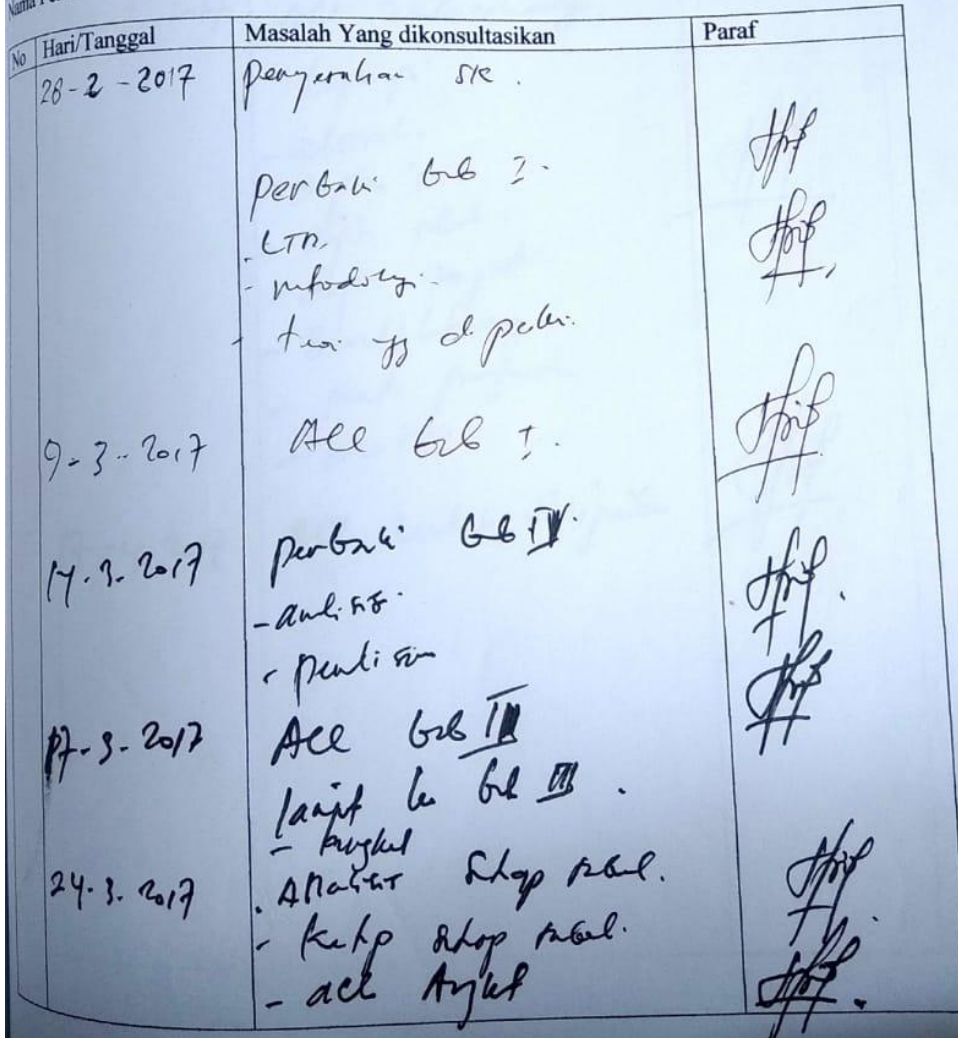 Nama
No Hari/Tanggal Masalah Yang dikonsultasikan Paraf
28-2-2017 Penyerahan SK.
Perbaiki bab I.
- LTB.
- metodologi.
- teori yg dipakai.
9-3-2017 Acc bab I.
14.3.2017 perbaiki bab
- analisis.
- penulisan
17-3-2017 Acc bab
lanjut ke bab III.
- Angket
24.3.2017 . setiap tabel.
- setiap tabel.
- acc Angket